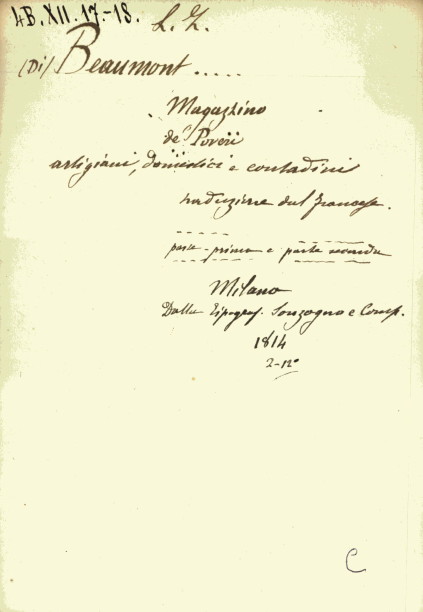 4B.XII.17.-18. L. Z.
(Di) Beaumont .....
Magazzino
de' Poveri
artigiani, domestici e contadini
traduzione dal francese.
parte prima e parte seconda
Milano
Dalla Tipograf. Sonzogno e Comp.
1814
2-12°
C